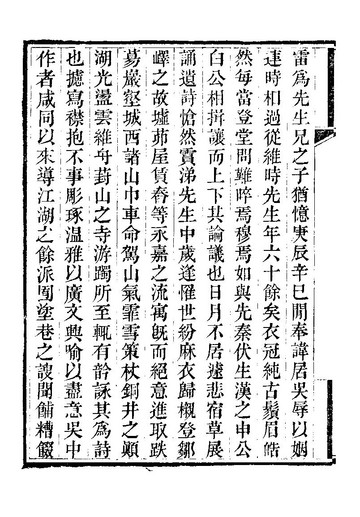 雷為先生兄之子猶憶庚辰辛巳閒奉諱居吳辱以姻
連時相過從維時先生年六十餘矣衣冠純古鬚眉皓
然每當登堂問難晬焉穆焉如與先秦伏生漢之申公
白公相揖讓而上下其論議也日月不居遠悲宿草展
誦遺詩愴然賁涕先生中歲逢罹世紛麻衣歸櫬登鄒
嶧之故墟茆屋賃舂等永嘉之流寓旣而絕意進取跌
蕩巖壑城西諸山巾車命駕山氣霏雪策杖銅井之顚
湖光盪雲維舟葑山之寺游躅所至輒有䛐詠其為詩
也攄寫襟抱不事彫琢溫雅以廣文興喻以盡意吳中
作者咸同以來導江湖之餘派囿塗巷之謏聞餔糟餟